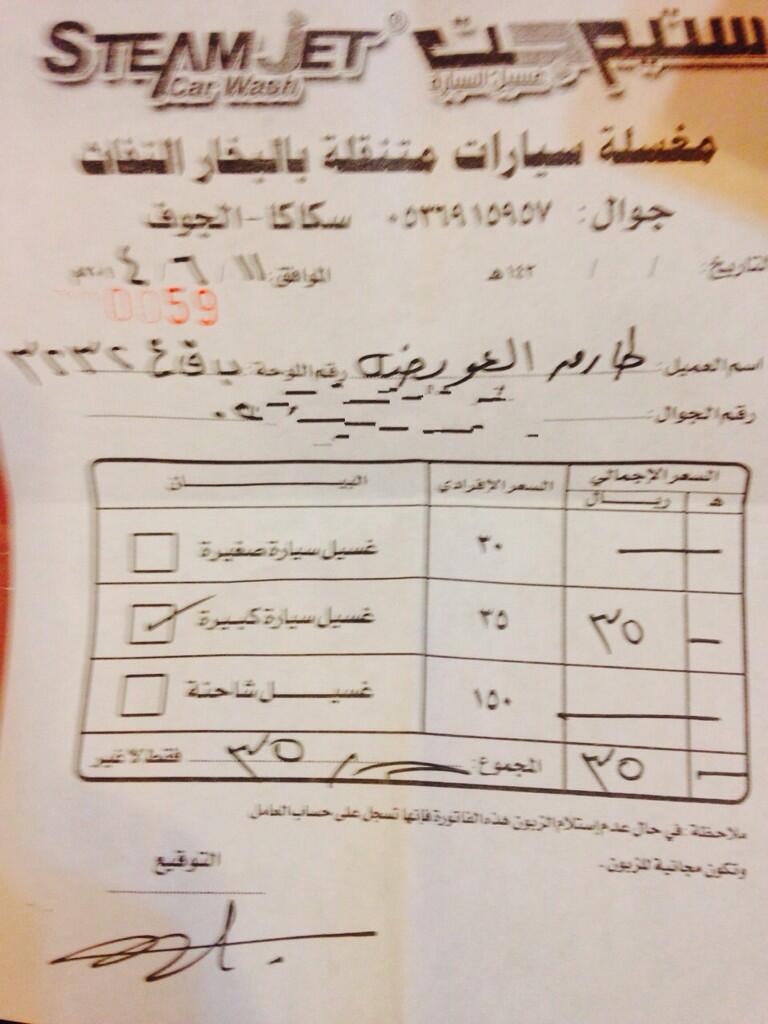 STEAM JET® ستيم جت
Car Wash غسيل السيارة
مغسلة سيارات متنقلة بالبخار النفاث
جوال: ٠٥٣٦٩١٥٩٥٧ سكاكا - الجوف
التاريخ: / / ١٤٣هـ الموافق: ١١ / ٦ / ٢٠١٤م
0059
اسم العميل: طارق العويضه رقم اللوحة: ب ق ع ٣٢٣٢
رقم الجوال:
السعر الإجمالي السعر الإفرادي البيـــــــان
هـ ريـــال
٣٠ غسيل سيارة صغيرة
٣٥ ٣٥ غسيل سيارة كبيرة
١٥٠ غسيـــل شاحنة
٣٥ المجموع: ٣٥ فقط لا غير
ملاحظة: في حال عدم إستلام الزبون هذه الفاتورة فإنها تسجل على حساب العامل
وتكون مجانية للزبون.
التوقيع